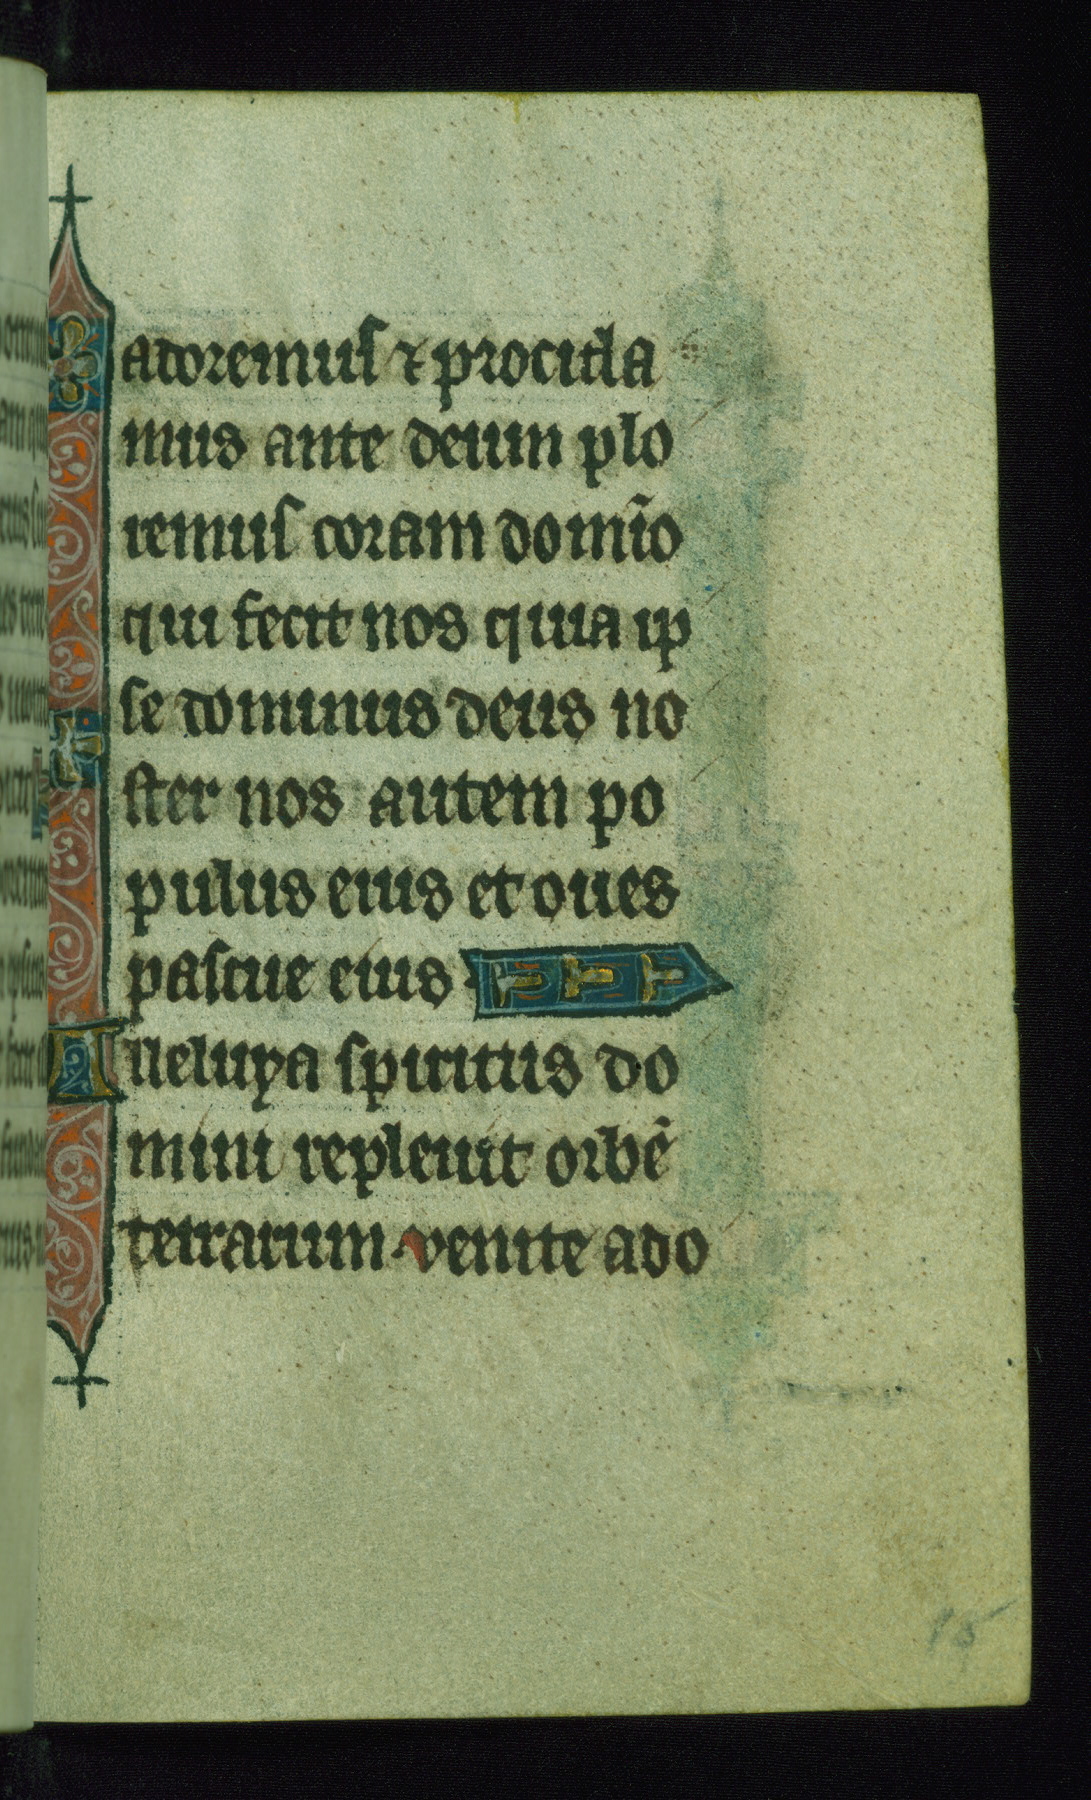 adoremus ⁊ procida
mus ante deum plo
remus coram domīo
qui fecit nos quia ip
se dominus deus no
ster nos autem po
pulus eius et oues
pascue eius
Alleluya spiritus do
mini repleuit orbē
terrarum. venite ado
15